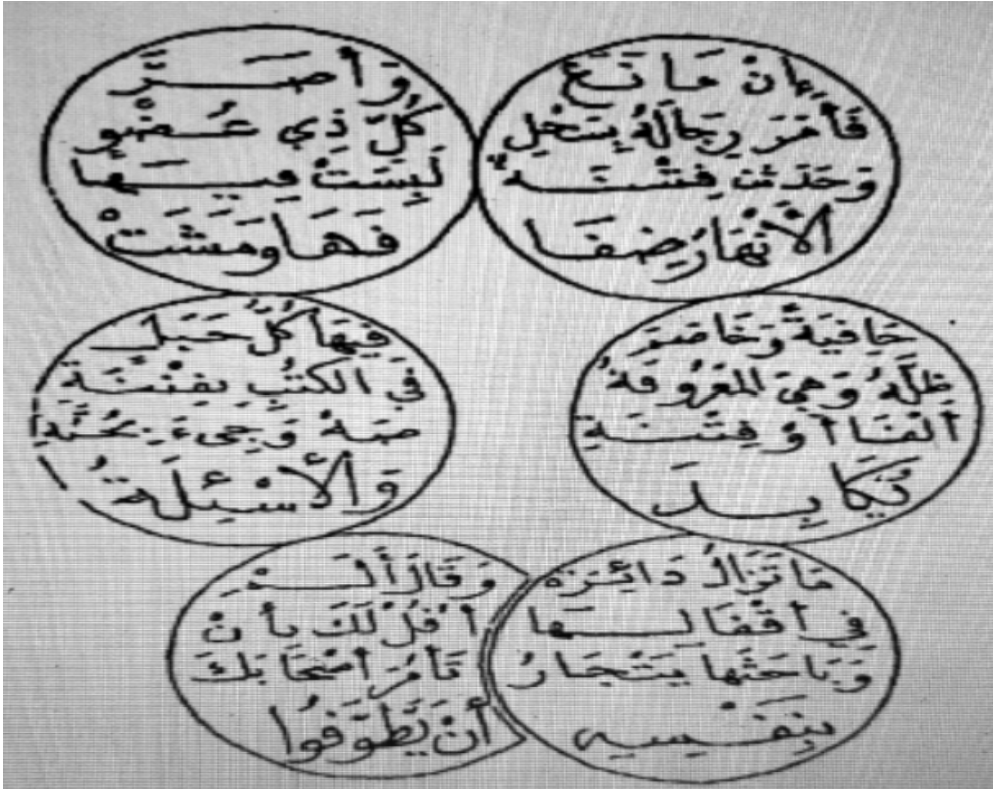 بِأَنْ مَا تَقَعَ
فَأَمَرَ رِجَالَهُ يَتَخِلُ
وَحَدَثَت فِتْنَةٌ
الأَنْهَارُ ضِفَا
وَأَصَرَّ
كُلّ ذِي عُضْوٍ
لَبِسَتْ فِيهَا
فَهَا وَمَشَتْ
خَافِيَةً وَخَاصَر
ظِلَّهُ وَهِيَ المَعْرُوفَةُ
أَلْفَا أَوْ فِتْنَةٍ
تُكَابِدَ
فِيهَا كُلُّ حَبَل
فِي الكُتُبِ بِفِتْنَةِ
وَجِيءَ
وَالأَسْئِلَةُ
مَا تَزَالُ دَائِرَة
فِي أَقْفَالِهَا
وَبَاحَتْهَا يَتْجَارُ
بِنَفْسِهِ
وَقَالَ أَلَمْ
أَقُلْ لَكَ بِأَنْ
تَأْمُرَ أَصْحَابَكَ
أَنْ يَطَّوَّفُوا